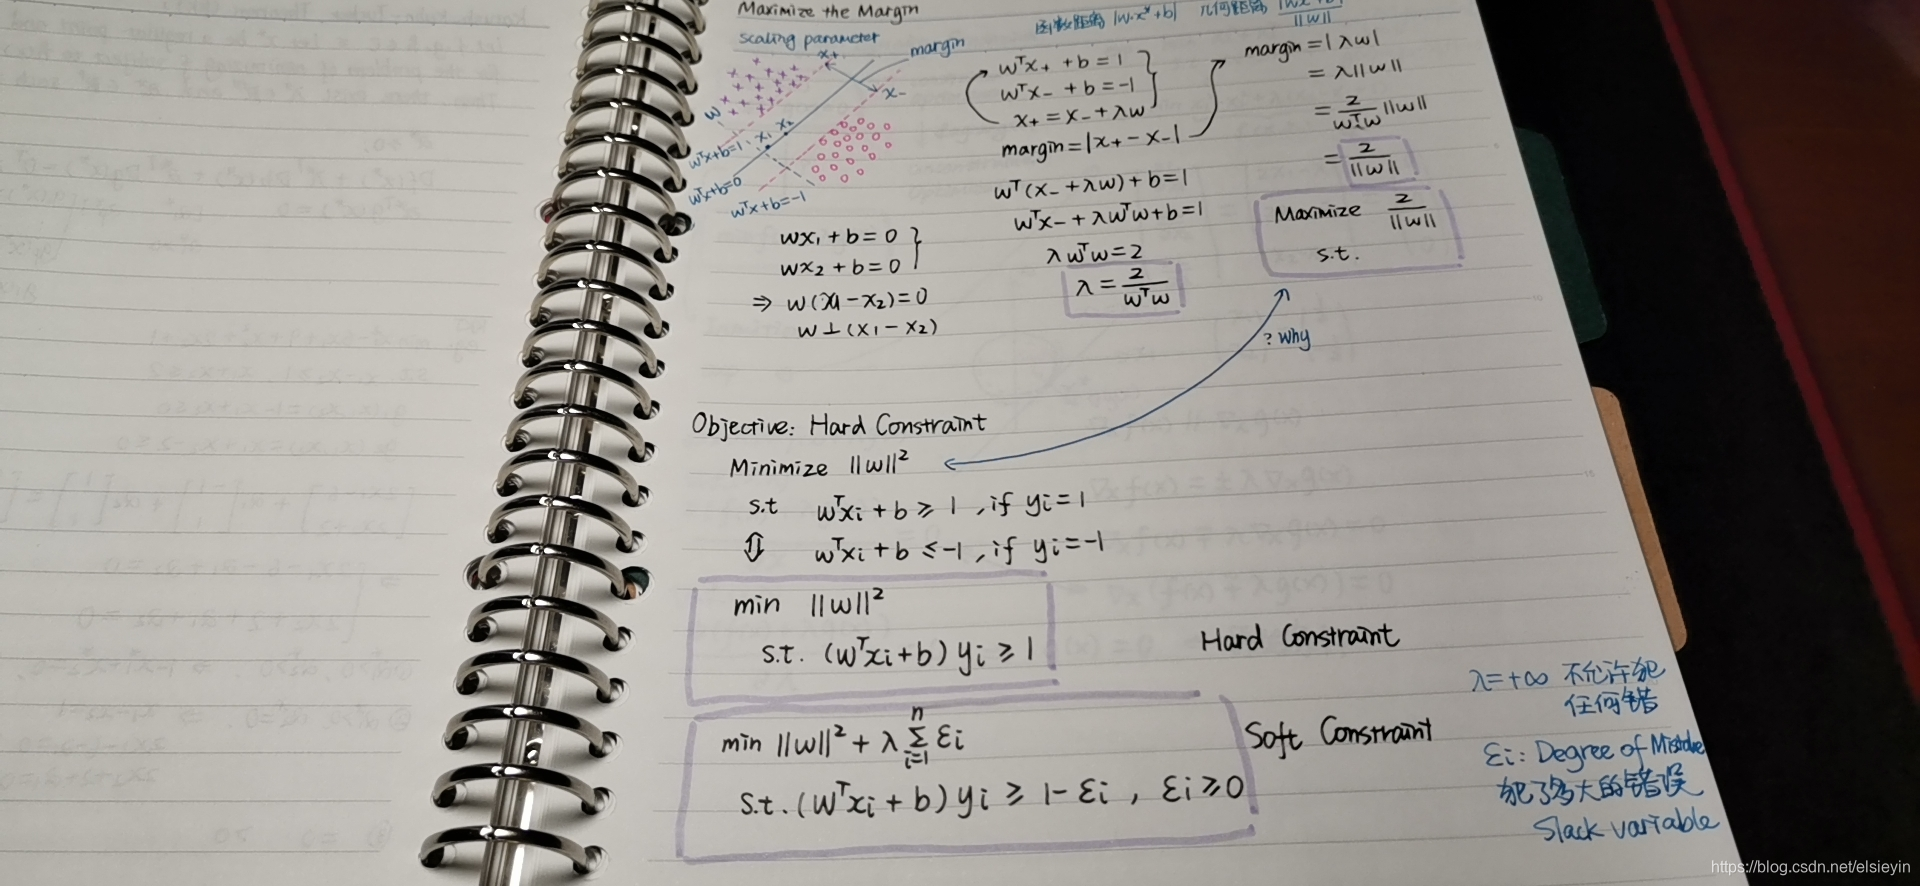 Maximize the Margin
函数距离 |w·x*+b| 几何距离
scaling parameter
margin
x+
x-
w
x1 x2
wᵀx+b=1
wᵀx+b=0
wᵀx+b=-1
wx₁+b=0
wx₂+b=0
⇒ w(x₁-x₂)=0
w⊥(x₁-x₂)
wᵀx₊+b=1
wᵀx₋+b=-1
x₊=x₋+λw
margin=|x₊-x₋|
wᵀ(x₋+λw)+b=1
wᵀx₋+λwᵀw+b=1
λwᵀw=2
λ=2/wᵀw
margin=|λw|
=λ||w||
=2/wᵀw ||w||
=2/||w||
Maximize 2/||w||
s.t.
? why
Objective: Hard Constraint
Minimize ||w||²
s.t wᵀxi+b≥1, if yi=1
⇕ wᵀxi+b≤-1, if yi=-1
min ||w||²
s.t. (wᵀxi+b)yi≥1
Hard Constraint
min ||w||²+λ∑ⁿᵢ₌₁εi
s.t. (wᵀxi+b)yi≥1-εi, εi≥0
Soft Constraint
λ=+∞ 不允许犯
任何错
εi: Degree of Mistake
犯了多大的错误
Slack variable
https://blog.csdn.net/elsieyin